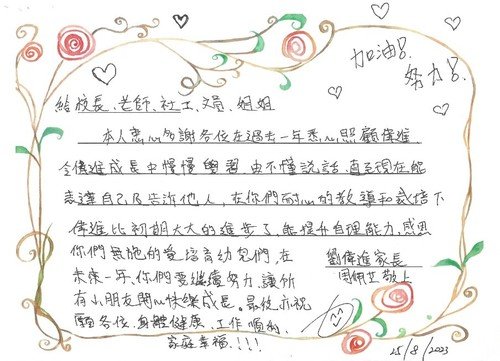 加油!
努力!
給校長、老師、社工、文員、姐姐
本人衷心多謝各位在過去一年悉心照顧偉進,
令偉進成長中慢慢學習,由不懂說話,直至現在能
表達自己及告訴他人,在你們耐心的教導和栽培下
偉進比初期大大的進步了,能提升自理能力,感恩
你們無施的愛培育幼兒們,在
未來一年,你們要繼續努力,讓所
有小朋友開心快樂成長。最後亦祝
願各位,身體健康、工作順利、
家庭幸福!!!!
劉偉進家長
周佩芝敬上
25/8/2023